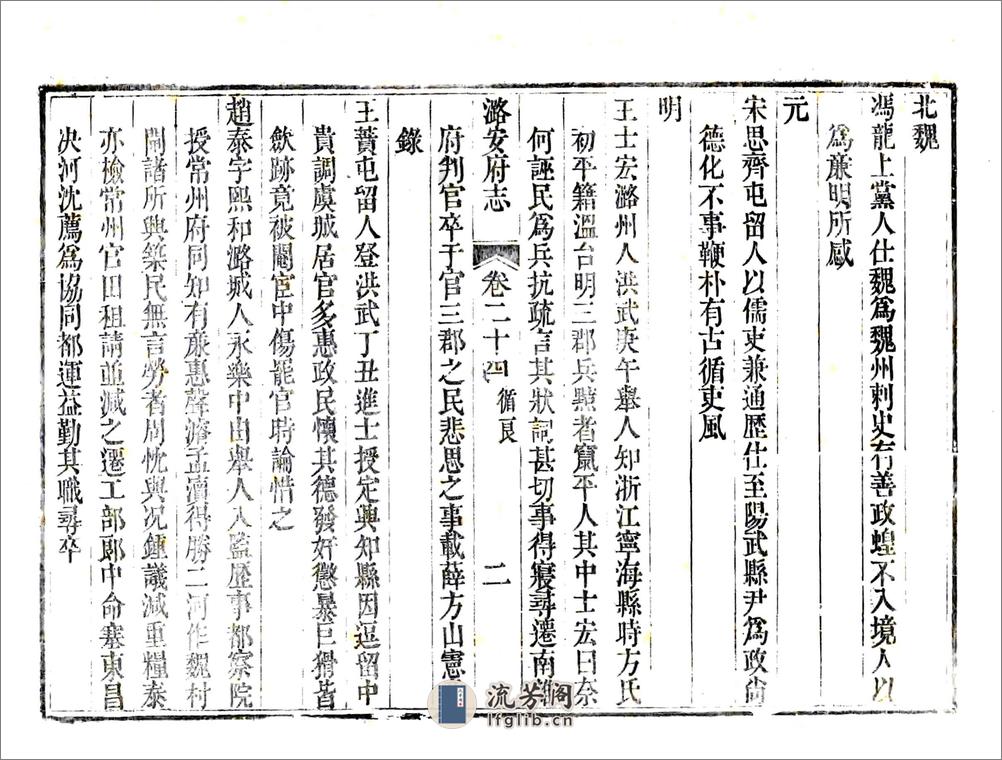 北魏
馮龍上黨人仕魏爲魏州刺史有善政蝗不入境人以
爲亷明所感
元
宋思齊屯留人以儒吏兼通歷仕至陽武縣尹爲政尚
德化不事鞭朴有古循吏風
明
王士宏潞州人洪武庚午舉人知浙江寧海縣時方氏
初平籍溫台明三郡兵黠者竄平人其中士宏曰奈
何誣民爲兵抗疏言其狀詞甚切事得寢尋遷南雄
潞安府志 卷二十四 循良 二
府判官卒于官三郡之民悲思之事載薛方山憲
錄
王蕢屯留人登洪武丁丑進士授定興知縣因逗留中
貴調虞城居官多惠政民懷其德發奸懲暴巨猾皆
斂跡竟被閹宦中傷罷官時論惜之
趙泰字熙和潞城人永樂中由舉人入監歷事都察院
授常州府同知有亷惠聲濬孟瀆得勝二河作魏村
閘諸所興築民無言勞者周忱與况鍾議減重糧泰
亦檢常州官田租請並減之遷工部郎中命塞東昌
决河沈薦爲協同都運益勤其職尋卒
流芳阁
lfglib.cn